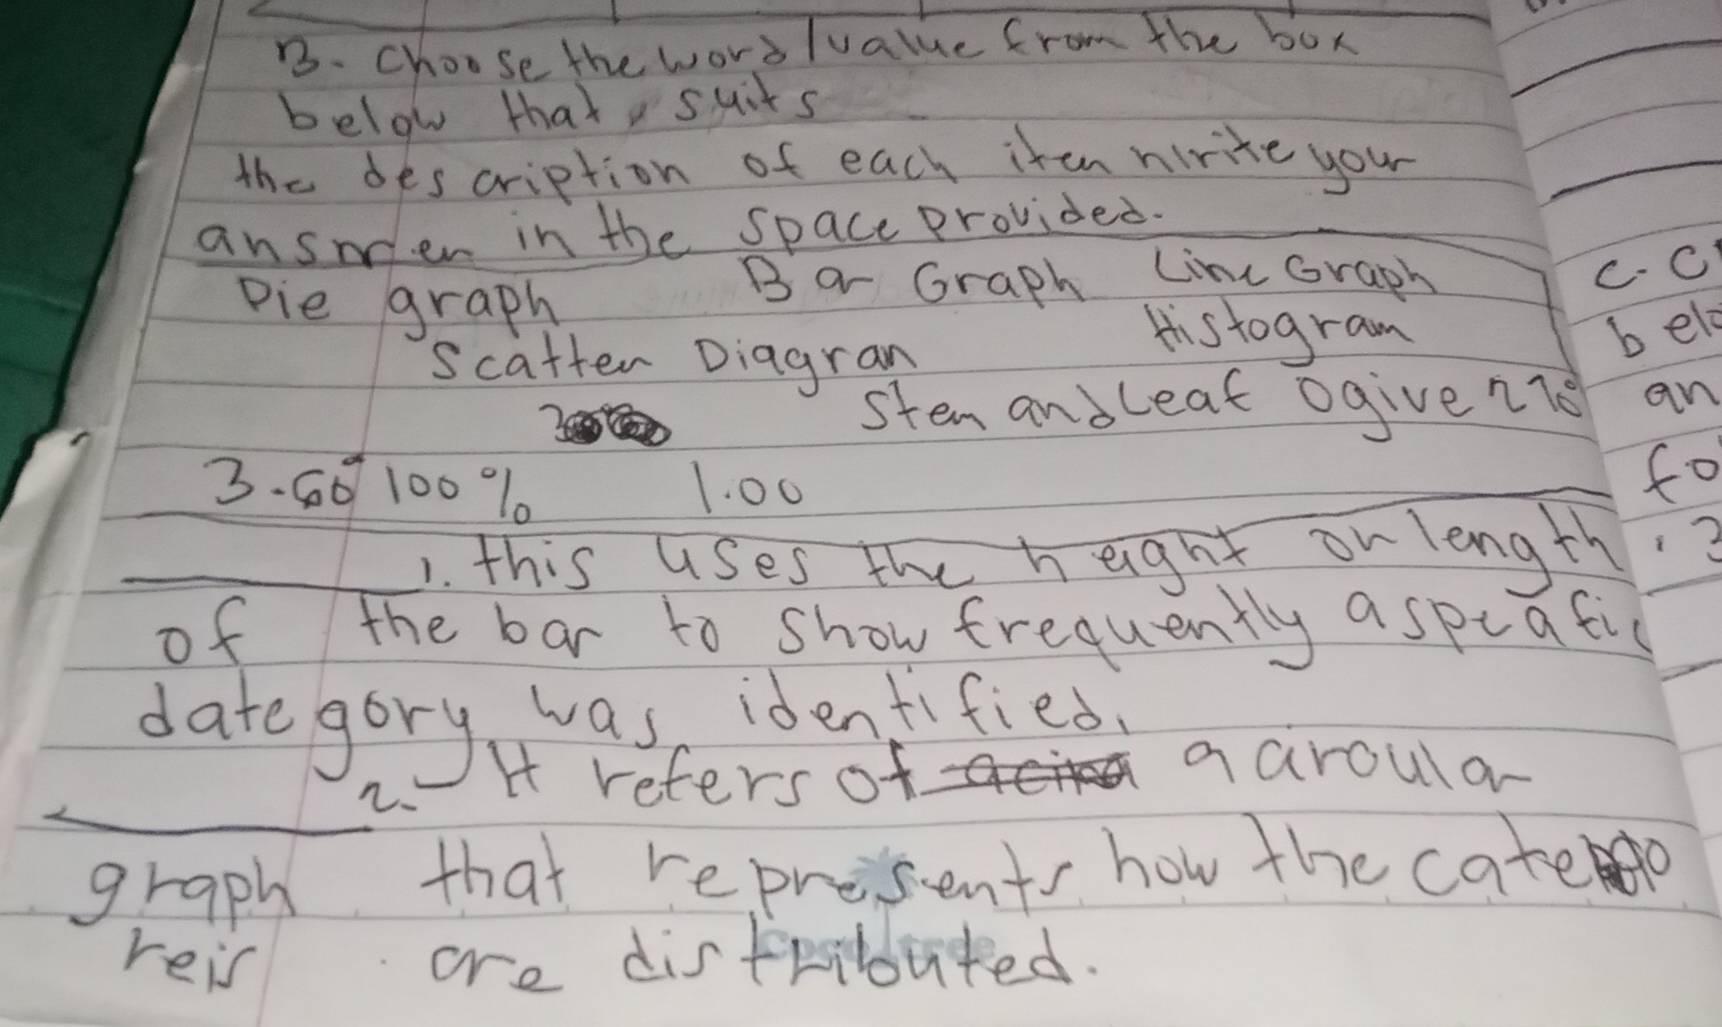 B. Choose the word/value from the box
below that suits
the description of each iten write your
answer in the space provided.
Pie graph Bar Graph Line Graph
Scatter Diagran Histogram
Stem and Leaf Ogive 270
3.60° 100% 1.00
1. this uses the height or length
of the bar to show frequently a specific
dategory was identified.
2. It refers of a circular
graph that represents how the catego
reis are distributed.
C. C
belo
an
fo